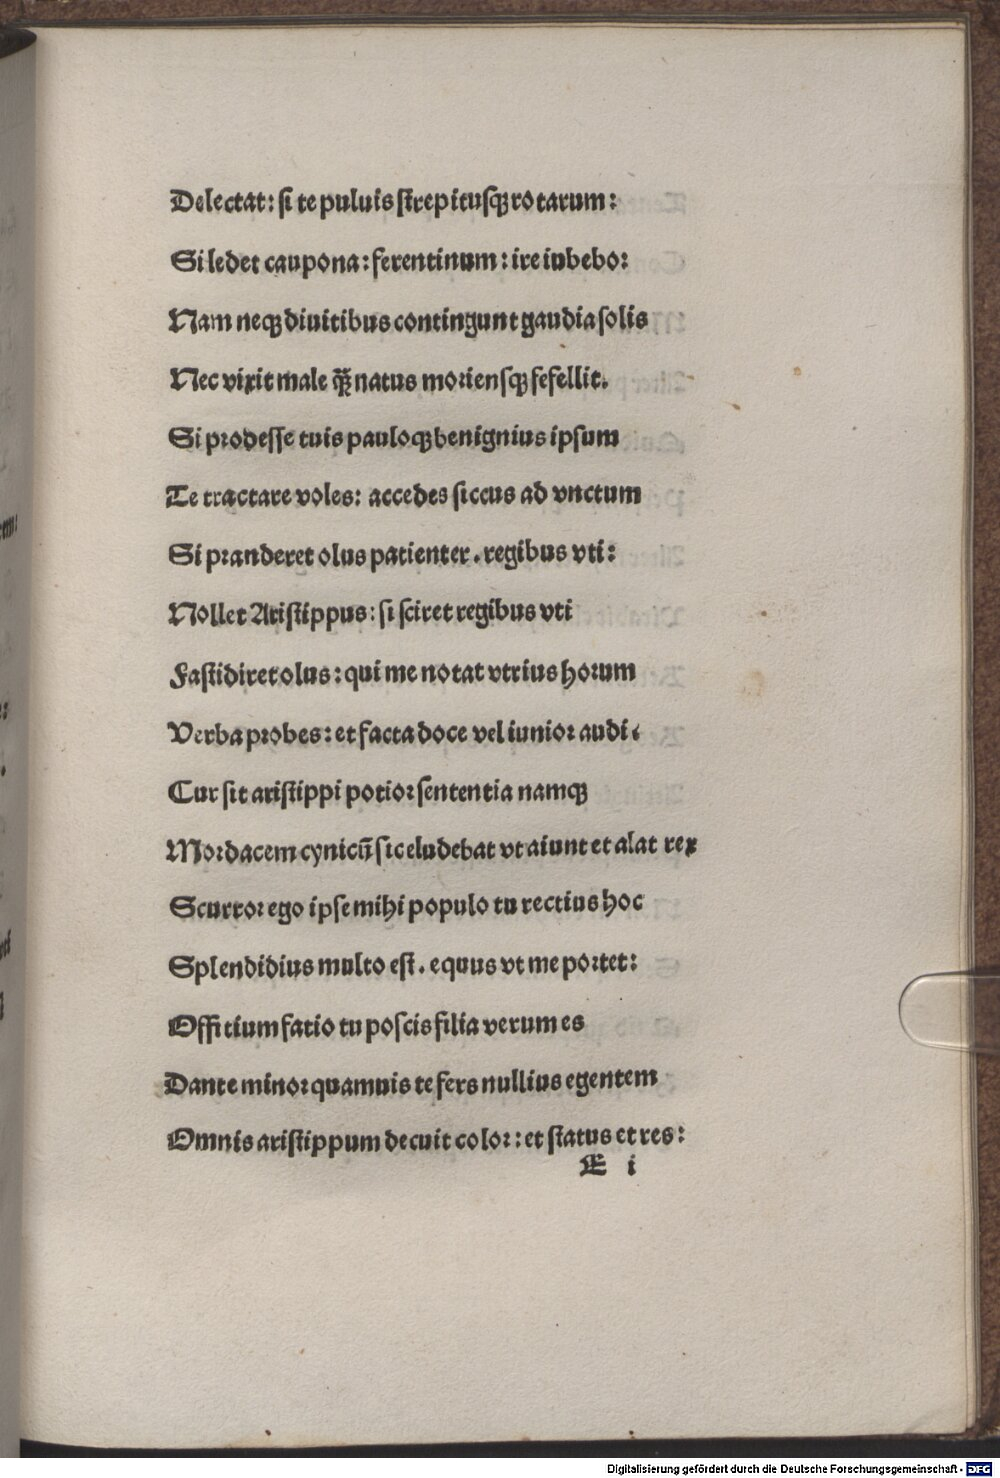 Delectat: si te puluis strepitusqꝫ rotarum:
Si ledet caupona: ferentinum: ire iubebo:
Nam neqꝫ diuitibus contingunt gaudia solis
Nec vixit male qͥ natus moriensqꝫ fefellit.
Si prodesse tuis pauloqꝫ benignius ipsum
Te tractare voles: accedes siccus ad vnctum
Si pranderet olus patienter. regibus vti:
Nollet Aristippus: si sciret regibus vti
Fastidiret olus: qui me notat vtrius horum
Verba probes: et facta doce vel iunior audi.
Cur sit aristippi potior sententia namqꝫ
Mordacem cynicū sic eludebat vt aiunt et alat rex
Scurror ego ipse mihi populo tu rectius hoc
Splendidius multo est. equus vt me portet:
Offitium fatio tu poscis filia verum es
Dante minor quamuis te fers nullius egentem
Omnis aristippum decuit color: et status et res:
E i
Digitalisierung gefördert durch die Deutsche Forschungsgemeinschaft - DFG